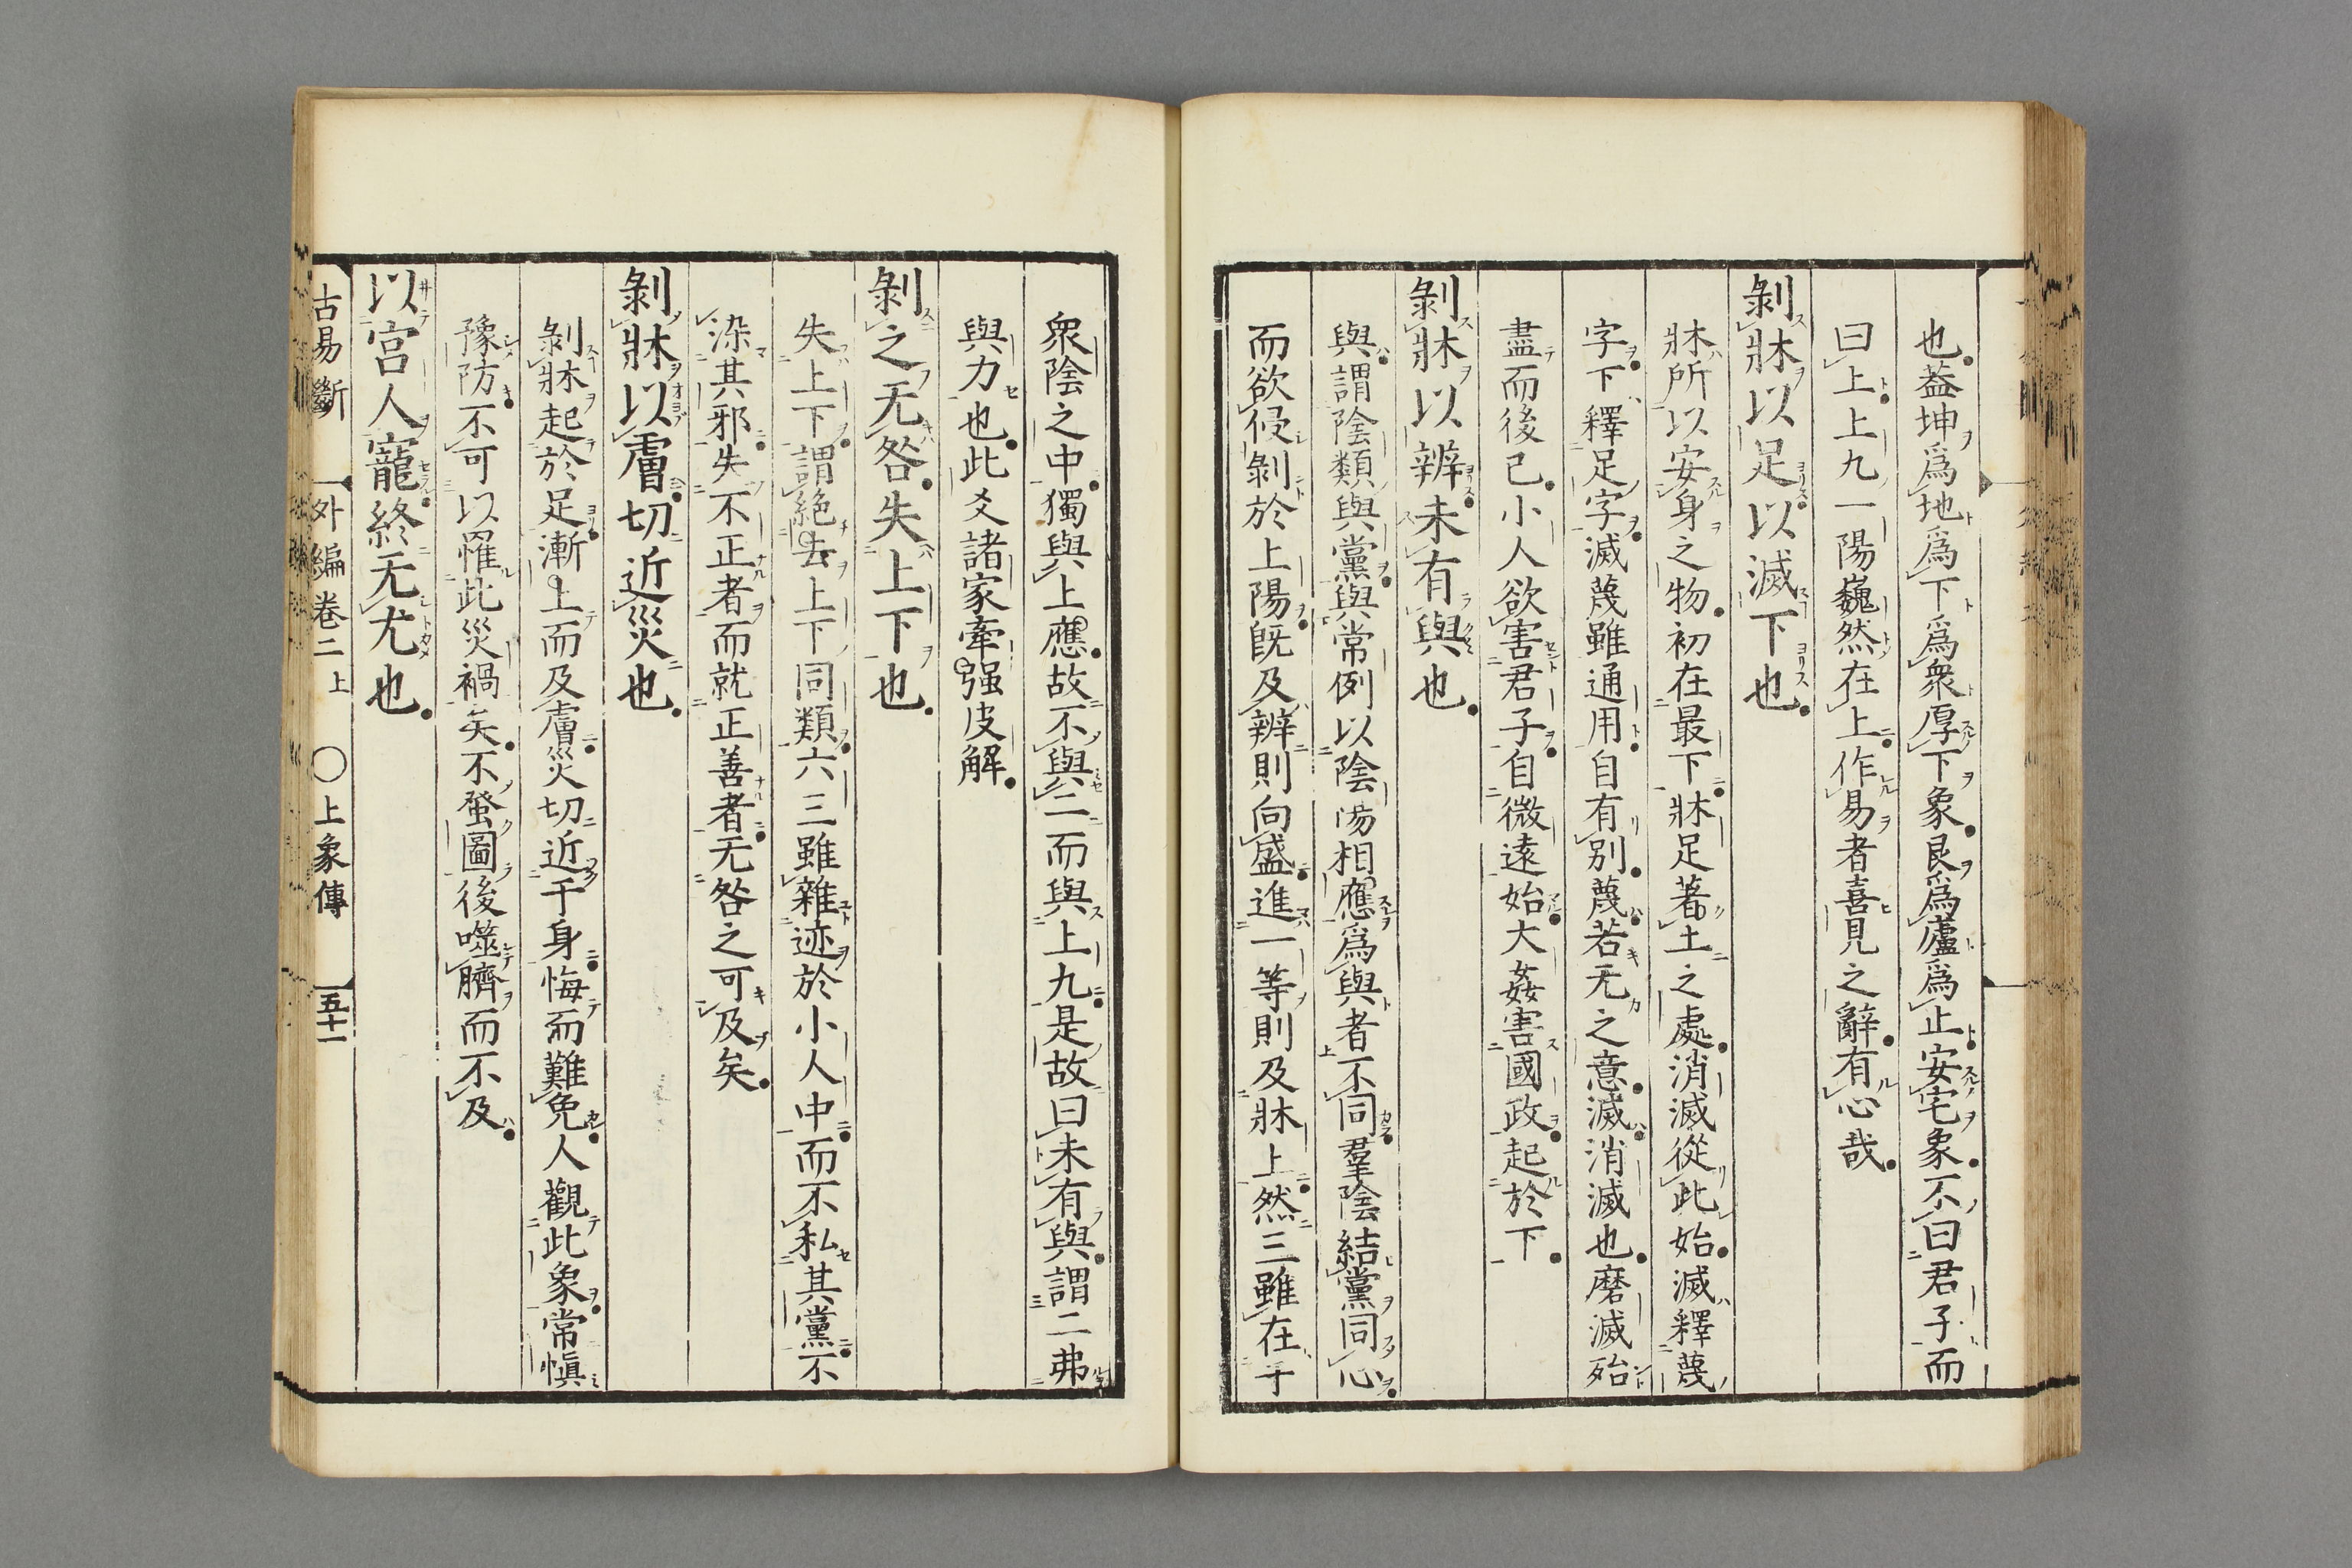 也蓋坤爲地爲下爲衆厚下象艮爲廬爲止安宅象不曰君子而
曰上上九一陽巍然在上作易者喜見之辭有心哉
剝牀以足以滅下也
牀所以安身之物初在最下牀足著土之處消滅從此始滅釋蔑
字下釋足字滅蔑雖通用自有別蔑若无之意滅消滅也磨滅殆
盡而後已小人欲害君子自微遠始大姦害國政起於下
剝牀以辨未有與也
與謂陰類與黨與常例以陰陽相應爲與者不同羣陰結黨同心
而欲侵剝於上陽既及辨則向盛進一等則及牀上然三雖在于
衆陰之中獨與上應故不與二而與上九是故曰未有與謂二弗
與力也此爻諸家牽强皮解
剝之无咎失上下也
失上下謂絶去上下同類六三雖雜迹於小人中而不私其黨不
染其邪失不正者而就正善者无咎之可及矣
剝牀以膚切近災也
剝牀起於足漸上而及膚災切近于身悔而難免人觀此象常愼
豫防不可以罹此災禍矣不蚤圖後噬臍而不及
以宮人寵終无尤也
古易斷 外編卷二上 〇上象傳 五十一